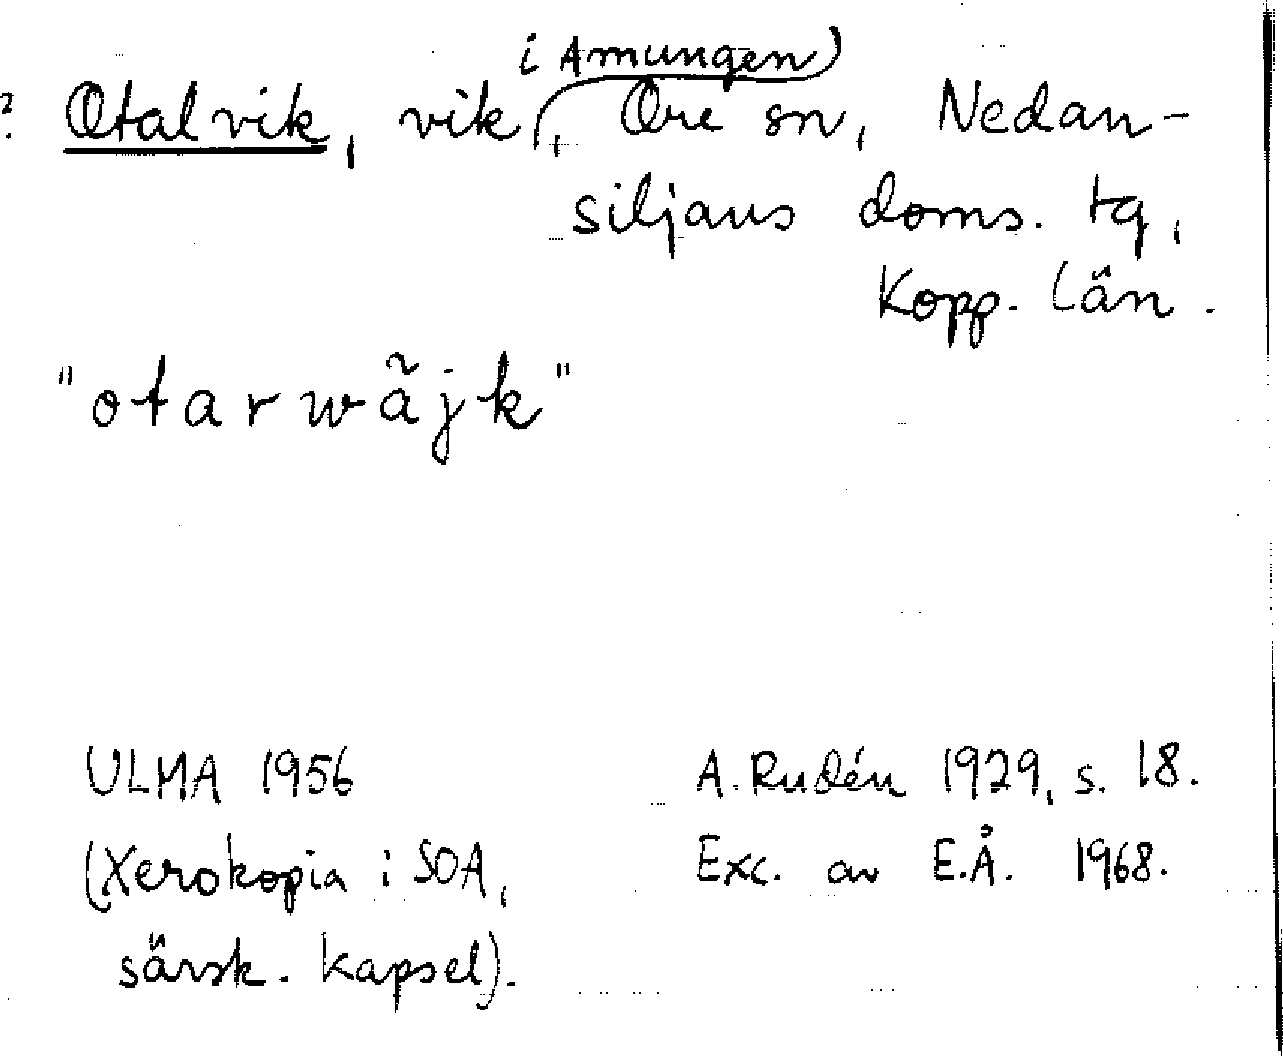 i Amungen)
? Otalvik, vik, Ore sn, Nedan-
siljans doms. tg,
Kopp. län.
"otarwãjk"
ULMA 1956
(Xerokopia i SOA,
särsk. kapsel).
A. Rudén 1929, s. 18.
Exc. av E.Å. 1968.